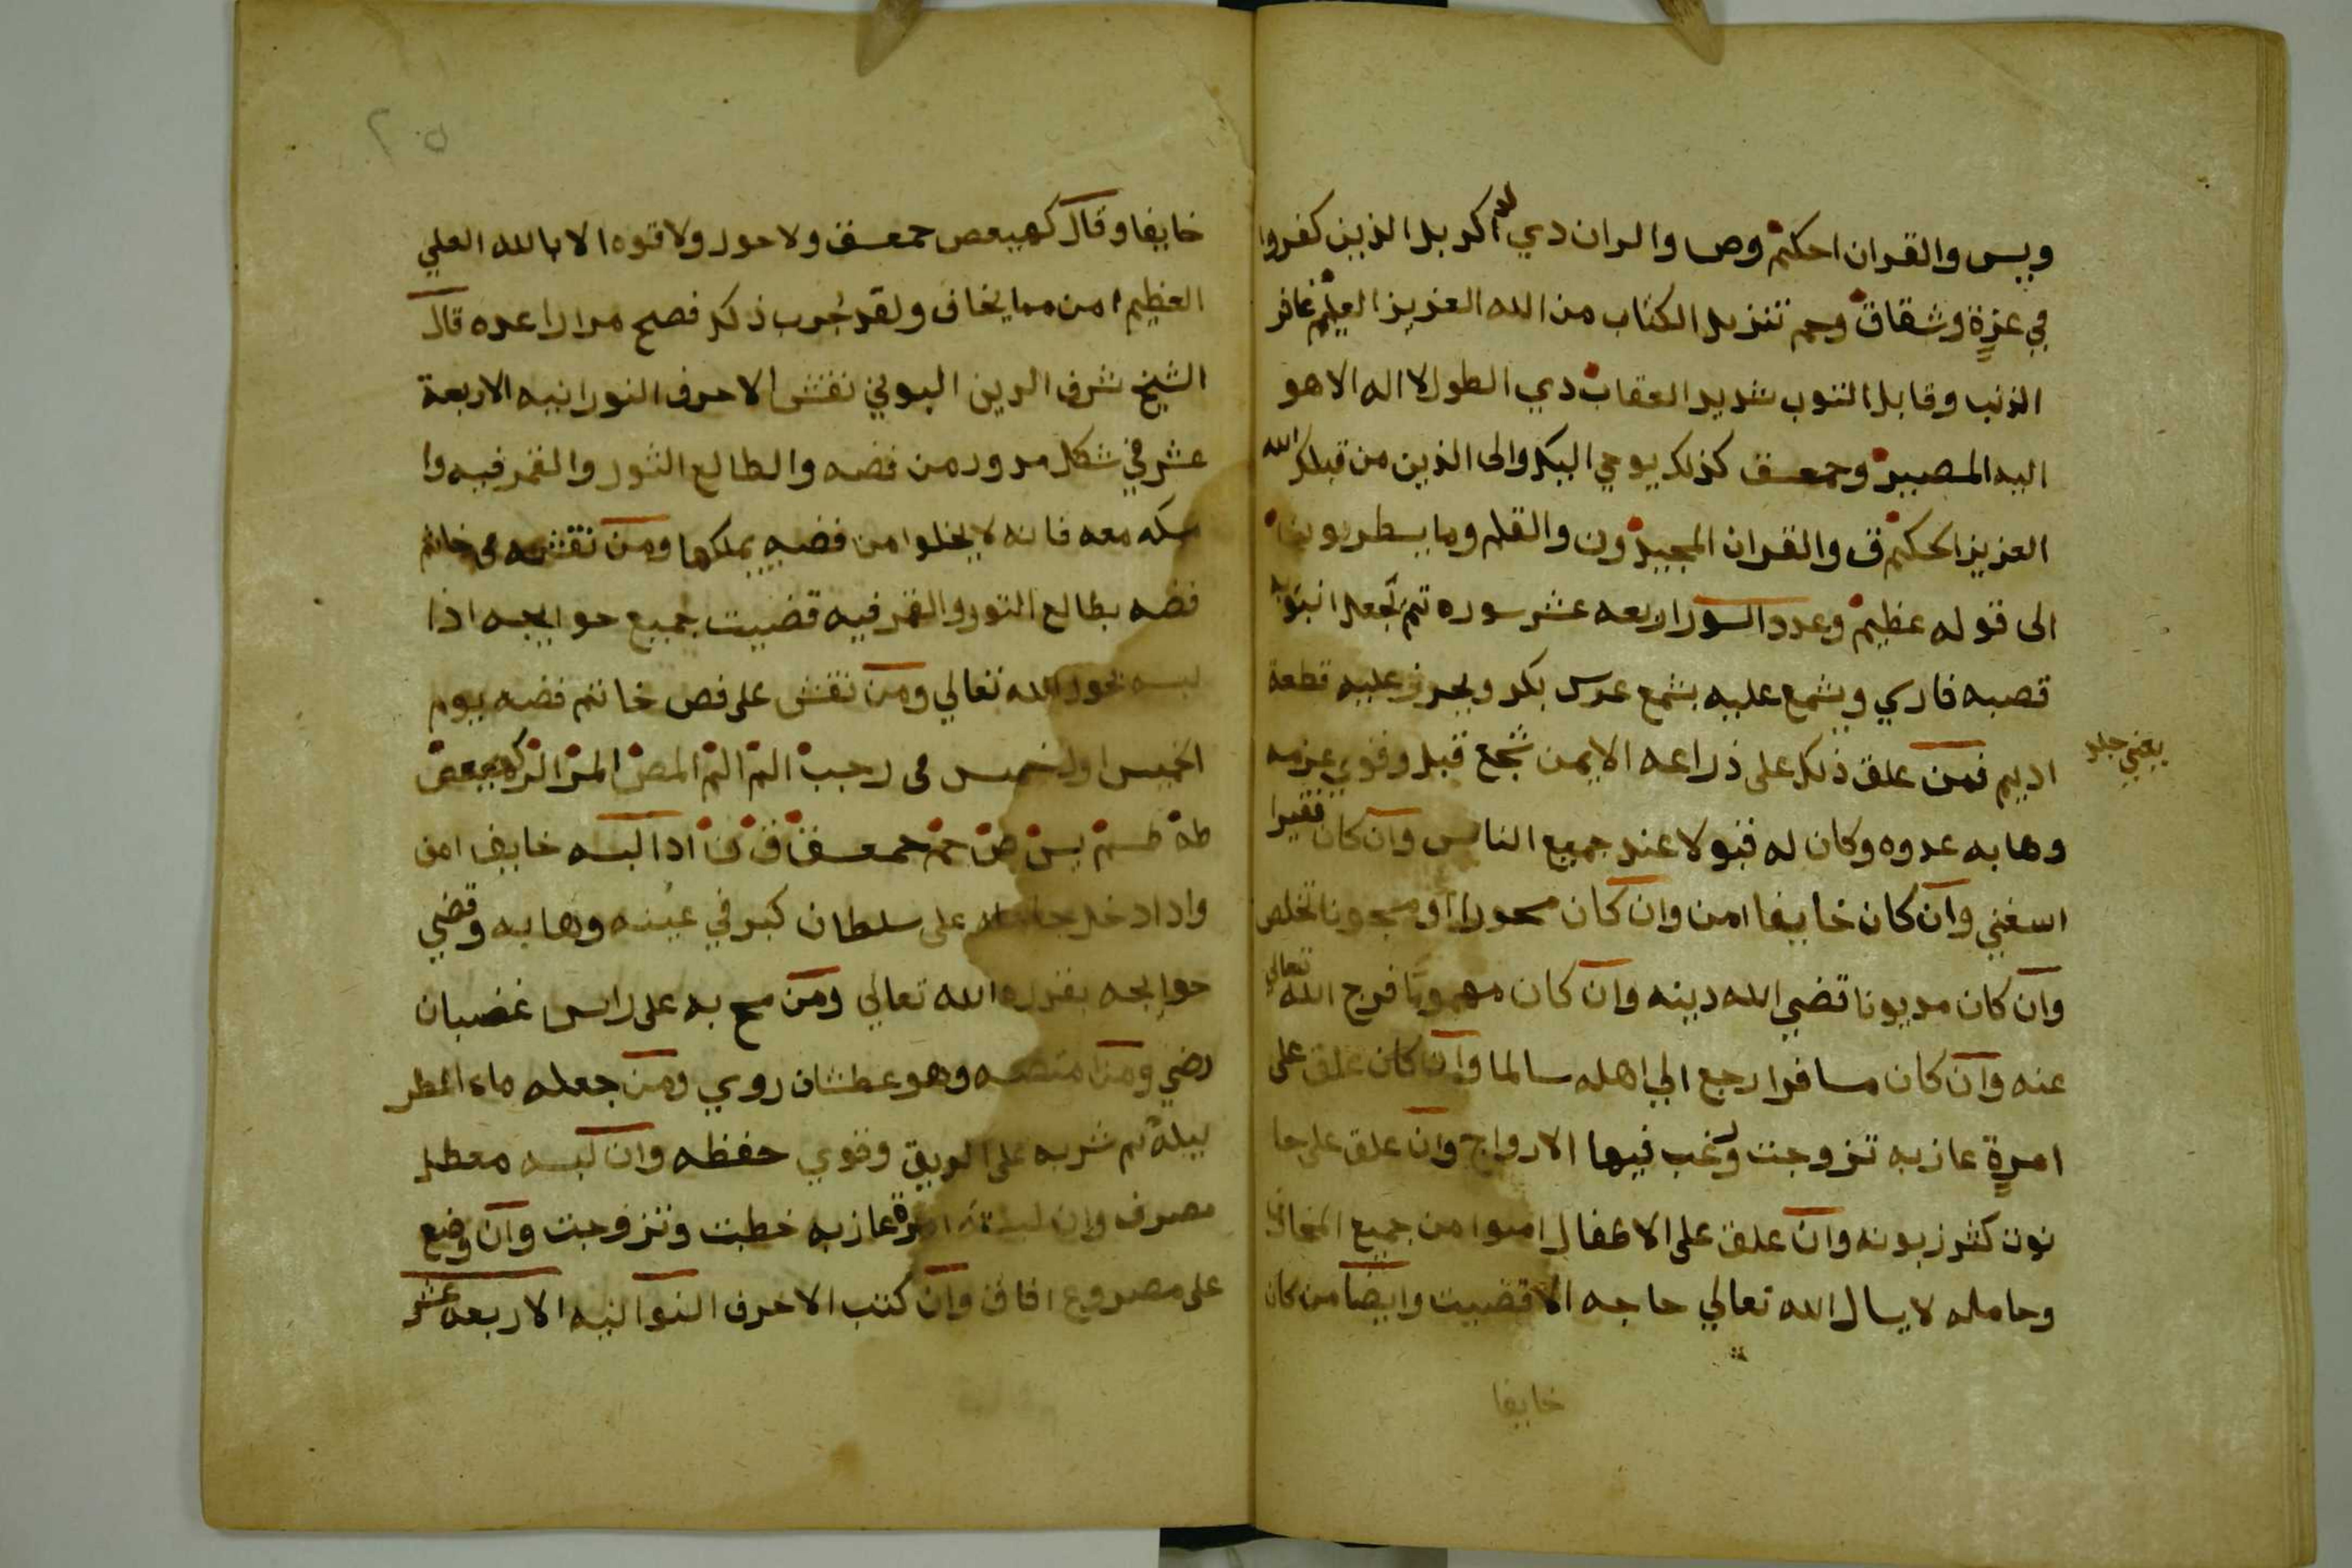 ويس والقران الحكيم وص والران دي الدكر بل الذين كفروا
في عزة وشقاق وحم تنزيل الكتاب من الله العزيز العليم غافر
الذنب وقابل التوب شديد العقاب دي الطول لا اله الا هو
اليه المصير وحمعسق كذلك يوحي اليك والى الذين من قبلك الله
العزيز الحكيم ق والقران المجيد ون والقلم وما يسطرون
الى قوله عظيم وعدد السور اربعه عشر سوره تم تجعل انبوبة
قصبه فارسي ويشمع عليه بشمع عرس بكر ويحرز عليه قطعة
اديم فمن علق ذلك على ذراعه الايمن شجع قبل وقوي عزمه
يعني جلد
وهابه عدوه وكان له قبولا عند جميع الناس وان كان فقيرا
اسغني وان كان خايفا امن وان كان مسحورا او مسجونا تخلص
وان كان مديونا قضي الله دينه وان كان مهموما فرج الله تعالي
عنه وان كان مسافرا رجع الي اهله سالما وان كان علق على
امرة عازبه تزوجت ورغب فيها الازواج وان علق على حا
نوت كثر زبونه وان علق على الاطفال امنوا من جميع المخاف
وحامله لا يسال الله تعالي حاجه الا قضيت وايضا من كان
خايفا
٢٠٥
خايفا وقال كهيعص حمعسق ولا حول ولا قوه الا بالله العلي
العظيم امن مما يخاف ولقد جرب ذلك فصح مرارا عده قال
الشيخ شرف الدين البوني نقش الاحرف النورانيه الاربعة
عشر في شكل مدور من فضه والطالع الثور والقمر فيه وا
مسكه معه فانه لا يخلوا من فضه يملكها ومن نقشه في خاتم
فضه بطالع الثور والقمر فيه قضيت جميع حوايجه اذا
لبسه بحول الله تعالي ومن نقش على فص خاتم فضه يوم
الخميس اول خميس في رجب الم الم المص المر الر كهيعص
طه طسم يس ص حم حمعسق ق ن ادا لبسه خايف امن
وادا دخل حامله على سلطان كبر في عينه وهابه وقضي
حوايجه بقدره الله تعالي ومن مسح به على راس غضبان
رضي ومن امتصه وهو عطشان روي ومن جعله ماء المطر
ليلة تم شربه على الريق وقوي حفظه وان لبسه معطل
مصرف وان لبسته امرة عازبه خطبت وتزوجت وان وضع
على مصروع افاق وان كتب الاحرف النوانيه الاربعه عشر